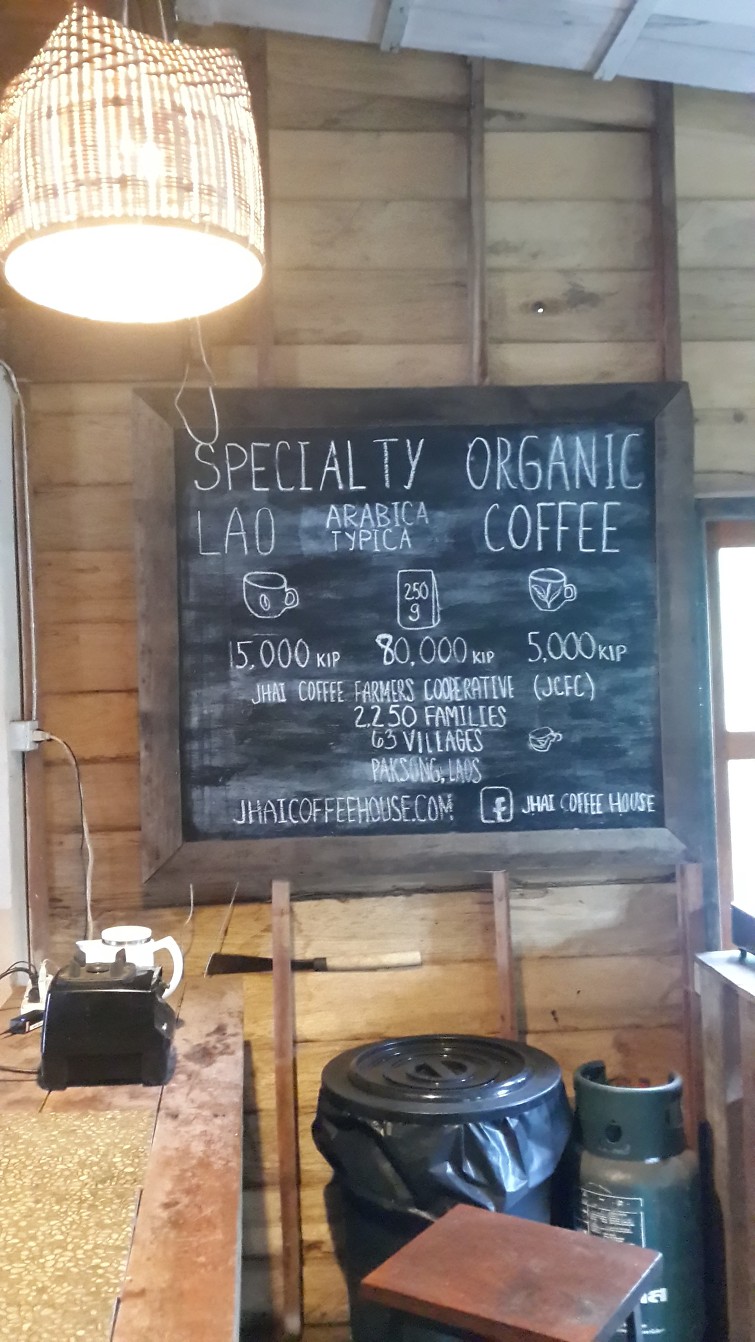 SPECIALTY ORGANIC
LAO ARABICA TYPICA COFFEE
250 g
15,000 KIP 80,000 KIP 5,000 KIP
JHAI COFFEE FARMERS COOPERATIVE (JCFC)
2,250 FAMILIES
63 VILLAGES
PAKSONG, LAOS
JHAICOFFEEHOUSE.COM f JHAI COFFEE HOUSE